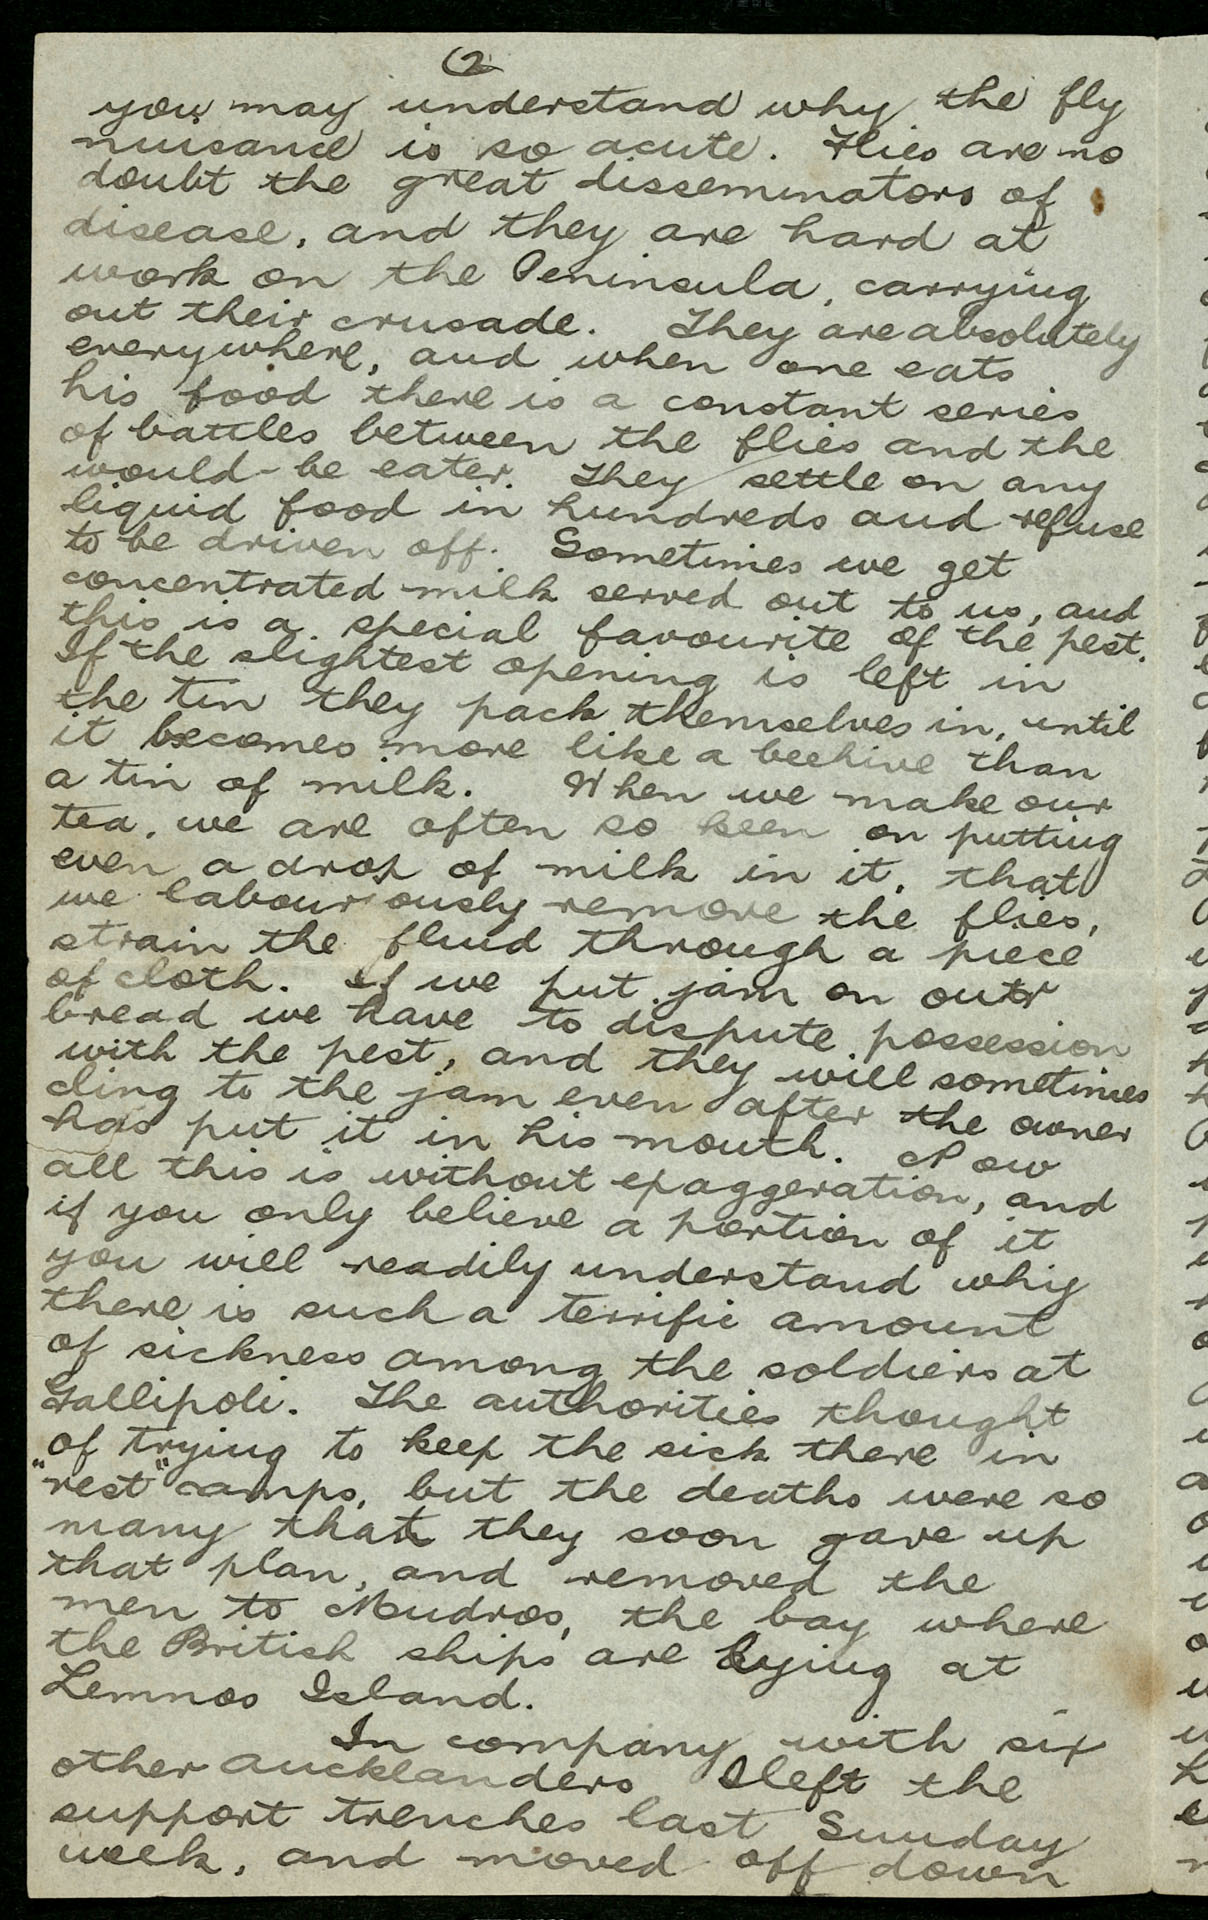 2
you may understand why the fly
nuisance is so acute. Flies are no
doubt the great disseminators of
disease, and they are hard at
work on the Peninsula, carrying
out their crusade. They are absolutely
everywhere, and when one eats
his food there is a constant series
of battles between the flies and the
would-be eater. They settle on any
liquid food in hundreds and refuse
to be driven off. Sometimes we get
concentrated milk served out to us, and
this is a special favourite of the pest.
If the slightest opening is left in
the tin they pack themselves in, until
it becomes more like a beehive than
a tin of milk. When we make our
tea, we are often so keen on putting
even a drop of milk in it, that
we labouriously remove the flies,
strain the fluid through a piece
of cloth. If we put jam on our
bread we have to dispute possession
with the pest, and they will sometimes
cling to the jam even after the owner
has put it in his mouth. Now
all this is without exaggeration, and
if you only believe a portion of it
you will readily understand why
there is such a terrific amount
of sickness among the soldiers at
Gallipoli. The authorities thought
of trying to keep the sick there in
"rest" camps, but the deaths were so
many that they soon gave up
that plan, and removed the
men to Mudros, the bay where
the British ships are lying at
Lemnos Island.
In company with six
other Aucklanders I left the
support trenches last Sunday
week, and moved off down